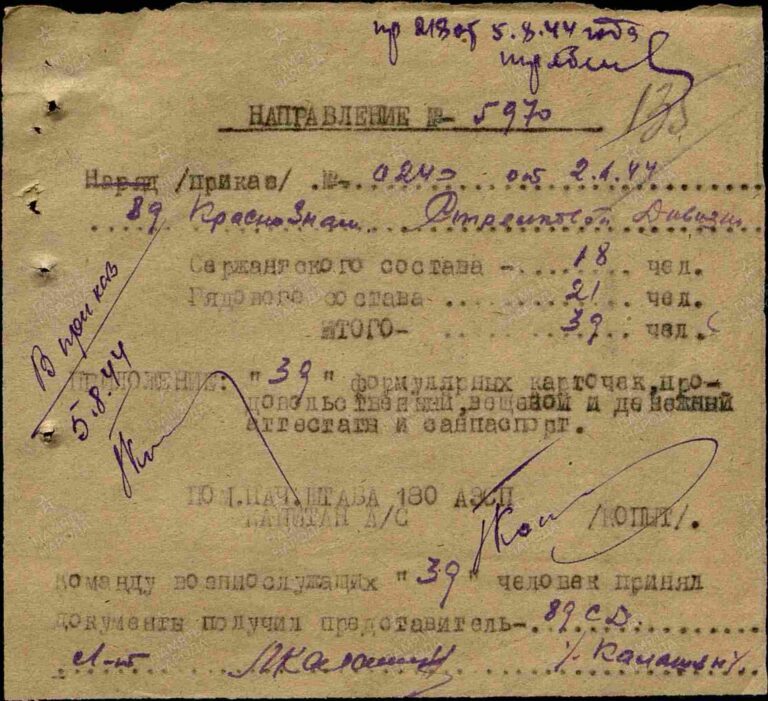 пр 218 от 5.8.44 года
НАПРАВЛЕНИЕ №- 5970
Наряд /приказ/ .№-..0240 от 2.4.44
89 Краснознам. Стрелковой Дивизии
Сержантского состава -..18.. чел.
Рядового состава ...21.. чел.
ИТОГО- ...39.. чел.
В приказ
5.8.44
ПРИЛОЖЕНИЕ: "39" формулярных карточек,про-
довольственный,вещевой и денежный
аттестаты и санпаспорт.
ПОМ.НАЧ.ШТАБА 180 АЗСП
КАПИТАН А/С /КОПЫТ/.
Команду военнослужащих "39" человек принял
документы получил представитель-.89 СД.